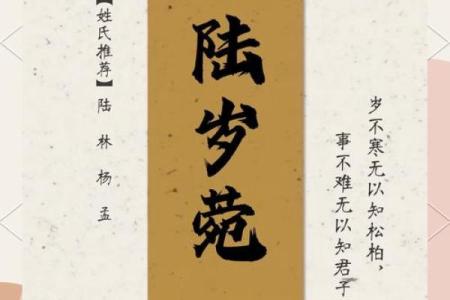 岁不寒无以知松柏，
事不难无以知君子
陆岁菀
【姓氏推荐】陆 林 杨 孟